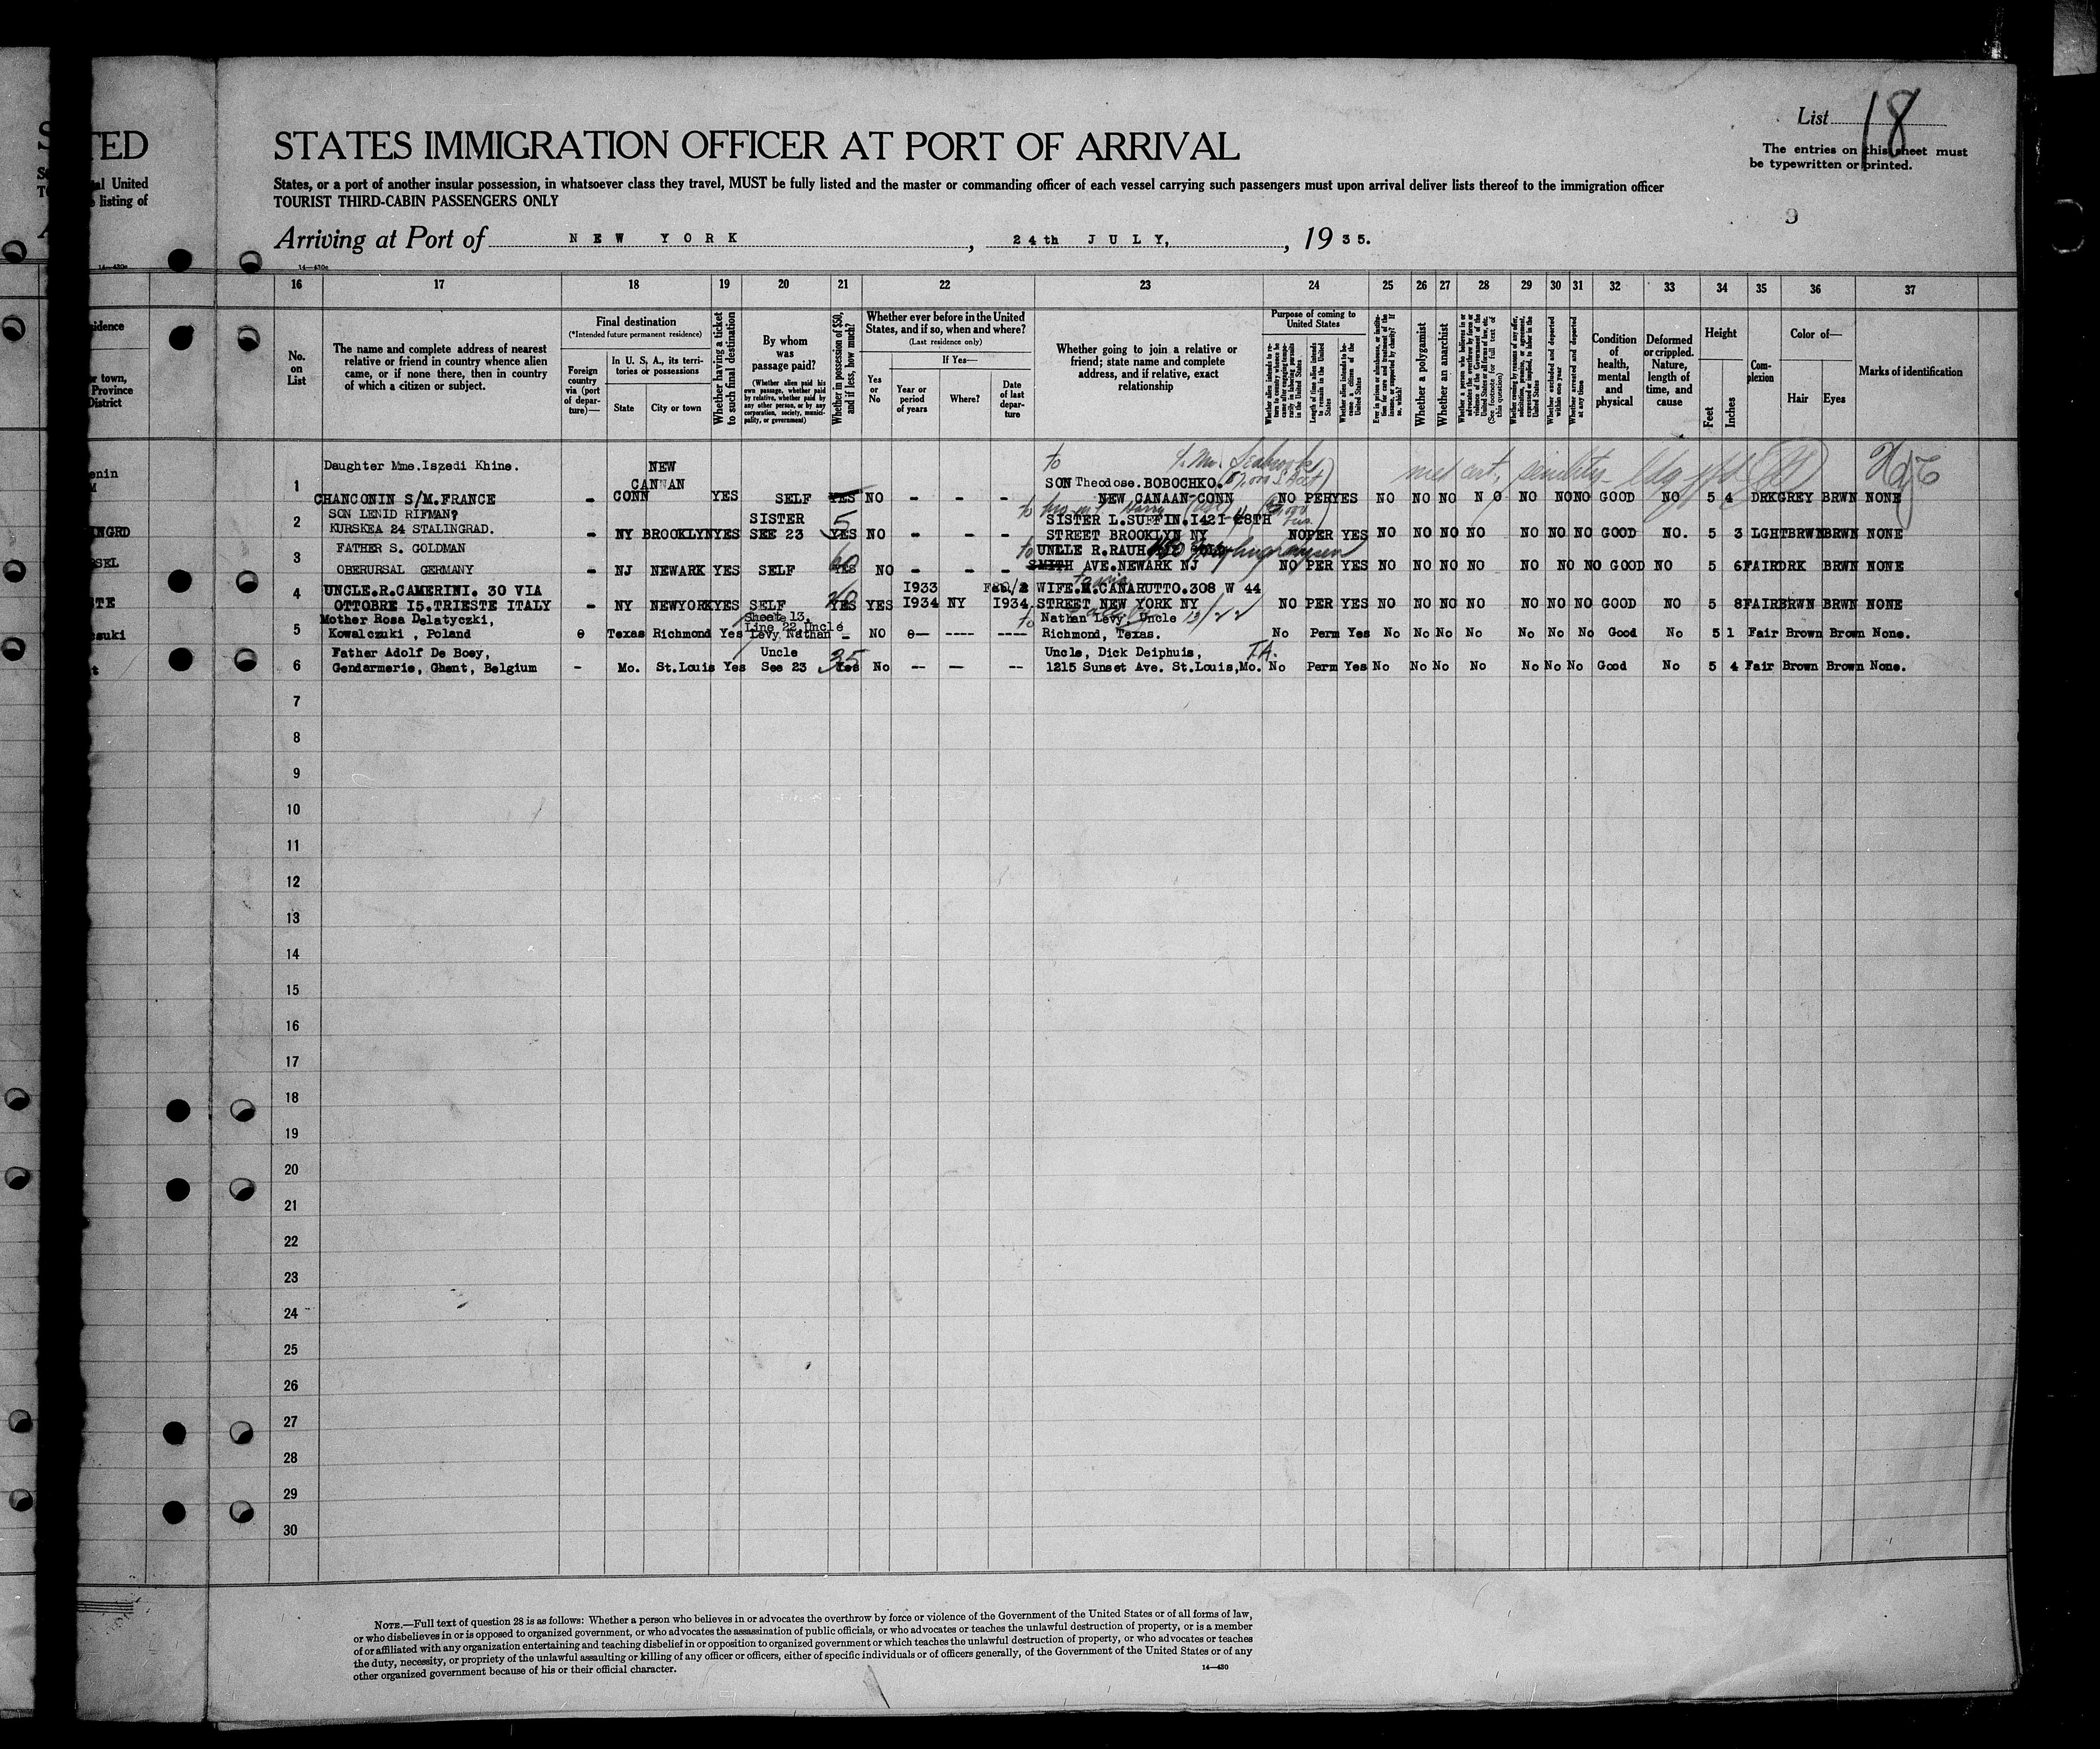 TED
al United
listing of
List 18
The entries on this sheet must
be typewritten or printed.
STATES IMMIGRATION OFFICER AT PORT OF ARRIVAL
States, or a port of another insular possession, in whatsoever class they travel, MUST be fully listed and the master or commanding officer of each vessel carrying such passengers must upon arrival deliver lists thereof to the immigration officer
TOURIST THIRD-CABIN PASSENGERS ONLY
9
Arriving at Port of NEW YORK, 24th JULY, 1935.
14—430c
16 17 18 19 20 21 22 23 24 25 26 27 28 29 30 31 32 33 34 35 36 37
No. on List
The name and complete address of nearest relative or friend in country whence alien came, or if none there, then in country of which a citizen or subject.
Final destination
(*Intended future permanent residence)
Foreign country via (port of departure)—
In U. S. A., its territories or possessions
State
City or town
Whether having a ticket to such final destination
By whom was passage paid?
(Whether alien paid his own passage, whether paid by relative, whether paid by any other person, or by any corporation, society, municipality, or government)
Whether in possession of $50, and if less, how much?
Whether ever before in the United States, and if so, when and where?
(Last residence only)
Yes or No
If Yes—
Year or period of years
Where?
Date of last departure
Whether going to join a relative or friend; state name and complete address, and if relative, exact relationship
Purpose of coming to United States
Length of time alien intends to remain in the United States
Whether alien intends to become a citizen of the United States
Whether a polygamist
Whether an anarchist
(See footnote for full text of this question)
Whether excluded and deported within one year
Whether arrested and deported at any time
Condition of health, mental and physical
Deformed or crippled. Nature, length of time, and cause
Height
Feet
Inches
Complexion
Color of—
Hair
Eyes
Marks of identification
to
Daughter Mme.Iszedi Khine. NEW
1 CANNAN SON Theodose.BOBOCHKO.
CHANCONIN S/M.FRANCE - CONN YES SELF YES NO - - - NEW CANAAN-CONN NO PER YES NO NO NO N O NO NO NO GOOD NO 5 4 DRK GREY BRWN NONE
SON LENID RIFMAN?
2 SISTER 5 SISTER L.SUFFIN.I42I 48TH
KURSKEA 24 STALINGRAD. - NY BROOKLYN YES SEE 23 YES NO - - - STREET BROOKLYN NY NO PER YES NO NO NO NO NO NO NO GOOD NO. 5 3 LGHT BRWN BRWN NONE
FATHER S. GOLDMAN 60 to UNCLE R.RAUH
3
OBERURSAL GERMANY - NJ NEWARK YES SELF YES NO - - - SMITH AVE.NEWARK NJ NO PER YES NO NO NO NO NO NO NO GOOD NO 5 6 FAIR DRK BRWN NONE
4 UNCLE.R.CAMERINI. 30 VIA I933 WIFE.M.CANARUTTO.308 W 44
OTTOBRE I5.TRIESTE ITALY - NY NEWYORK YES SELF YES YES I934 NY I934 STREET NEW YORK NY NO PER YES NO NO NO NO NO NO NO GOOD NO 5 8 FAIR BRWN BRWN NONE
Mother Rosa Delatyczki, Sheet 13, to Nathan Levy, Uncle 13/22
5 Line 22 Uncle
Kowalczuki , Poland Texas Richmond Yes Levy Nathan - NO ---- ---- Richmond, Texas. No Perm Yes No No No No No No No Good No 5 1 Fair Brown Brown None.
Father Adolf De Boey, Uncle 35 Uncle, Dick Deiphuis,
6 Gendarmerie, Ghent, Belgium - Mo. St.Louis Yes See 23 Yes No -- — -- 1215 Sunset Ave. St.Louis,Mo. No Perm Yes No No No No No No No Good No 5 4 Fair Brown Brown None.
7
8
9
10
11
12
13
14
15
16
17
18
19
20
21
22
23
24
25
26
27
28
29
30
NOTE.—Full text of question 28 is as follows: Whether a person who believes in or advocates the overthrow by force or violence of the Government of the United States or of all forms of law,
or who disbelieves in or is opposed to organized government, or who advocates the assassination of public officials, or who advocates or teaches the unlawful destruction of property, or is a member
of or affiliated with any organization entertaining and teaching disbelief in or opposition to organized government or which teaches the unlawful destruction of property, or who advocates or teaches
the duty, necessity, or propriety of the unlawful assaulting or killing of any officer or officers, either of specific individuals or of officers generally, of the Government of the United States or of any
other organized government because of his or their official character.
14—430